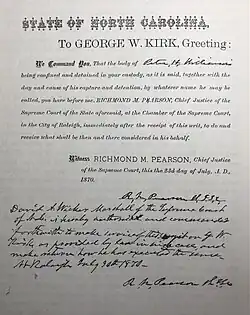 STATE OF NORTH CAROLINA,
To GEORGE W. KIRK, Greeting:
We Command You, That the body of Peter H. Williamson
being confined and detained in your custody, as it is said, together with the
day and name of his capture and detention, by whatever name he may be
called, you have before me, RICHMOND M. PEARSON, Chief Justice of the
Supreme Court of the State aforesaid, at the Chamber of the Supreme Court,
in the City of Raleigh, immediately after the receipt of this writ, to do and
receive what shall be then and there considered in his behalf.
Witness RICHMOND M. PEARSON, Chief Justice
of the Supreme Court, this the 23d day of July, A. D.,
1870.
R. M. Pearson
David A. Wicker Marshall of the Supreme Court
of is hereby authorized and commanded
forthwith to make service of this writ on G. W.
Kirk, as provided by law in such case, and
make return how he has executed the same
At Raleigh July 30th 1870—
R. M. Pearson